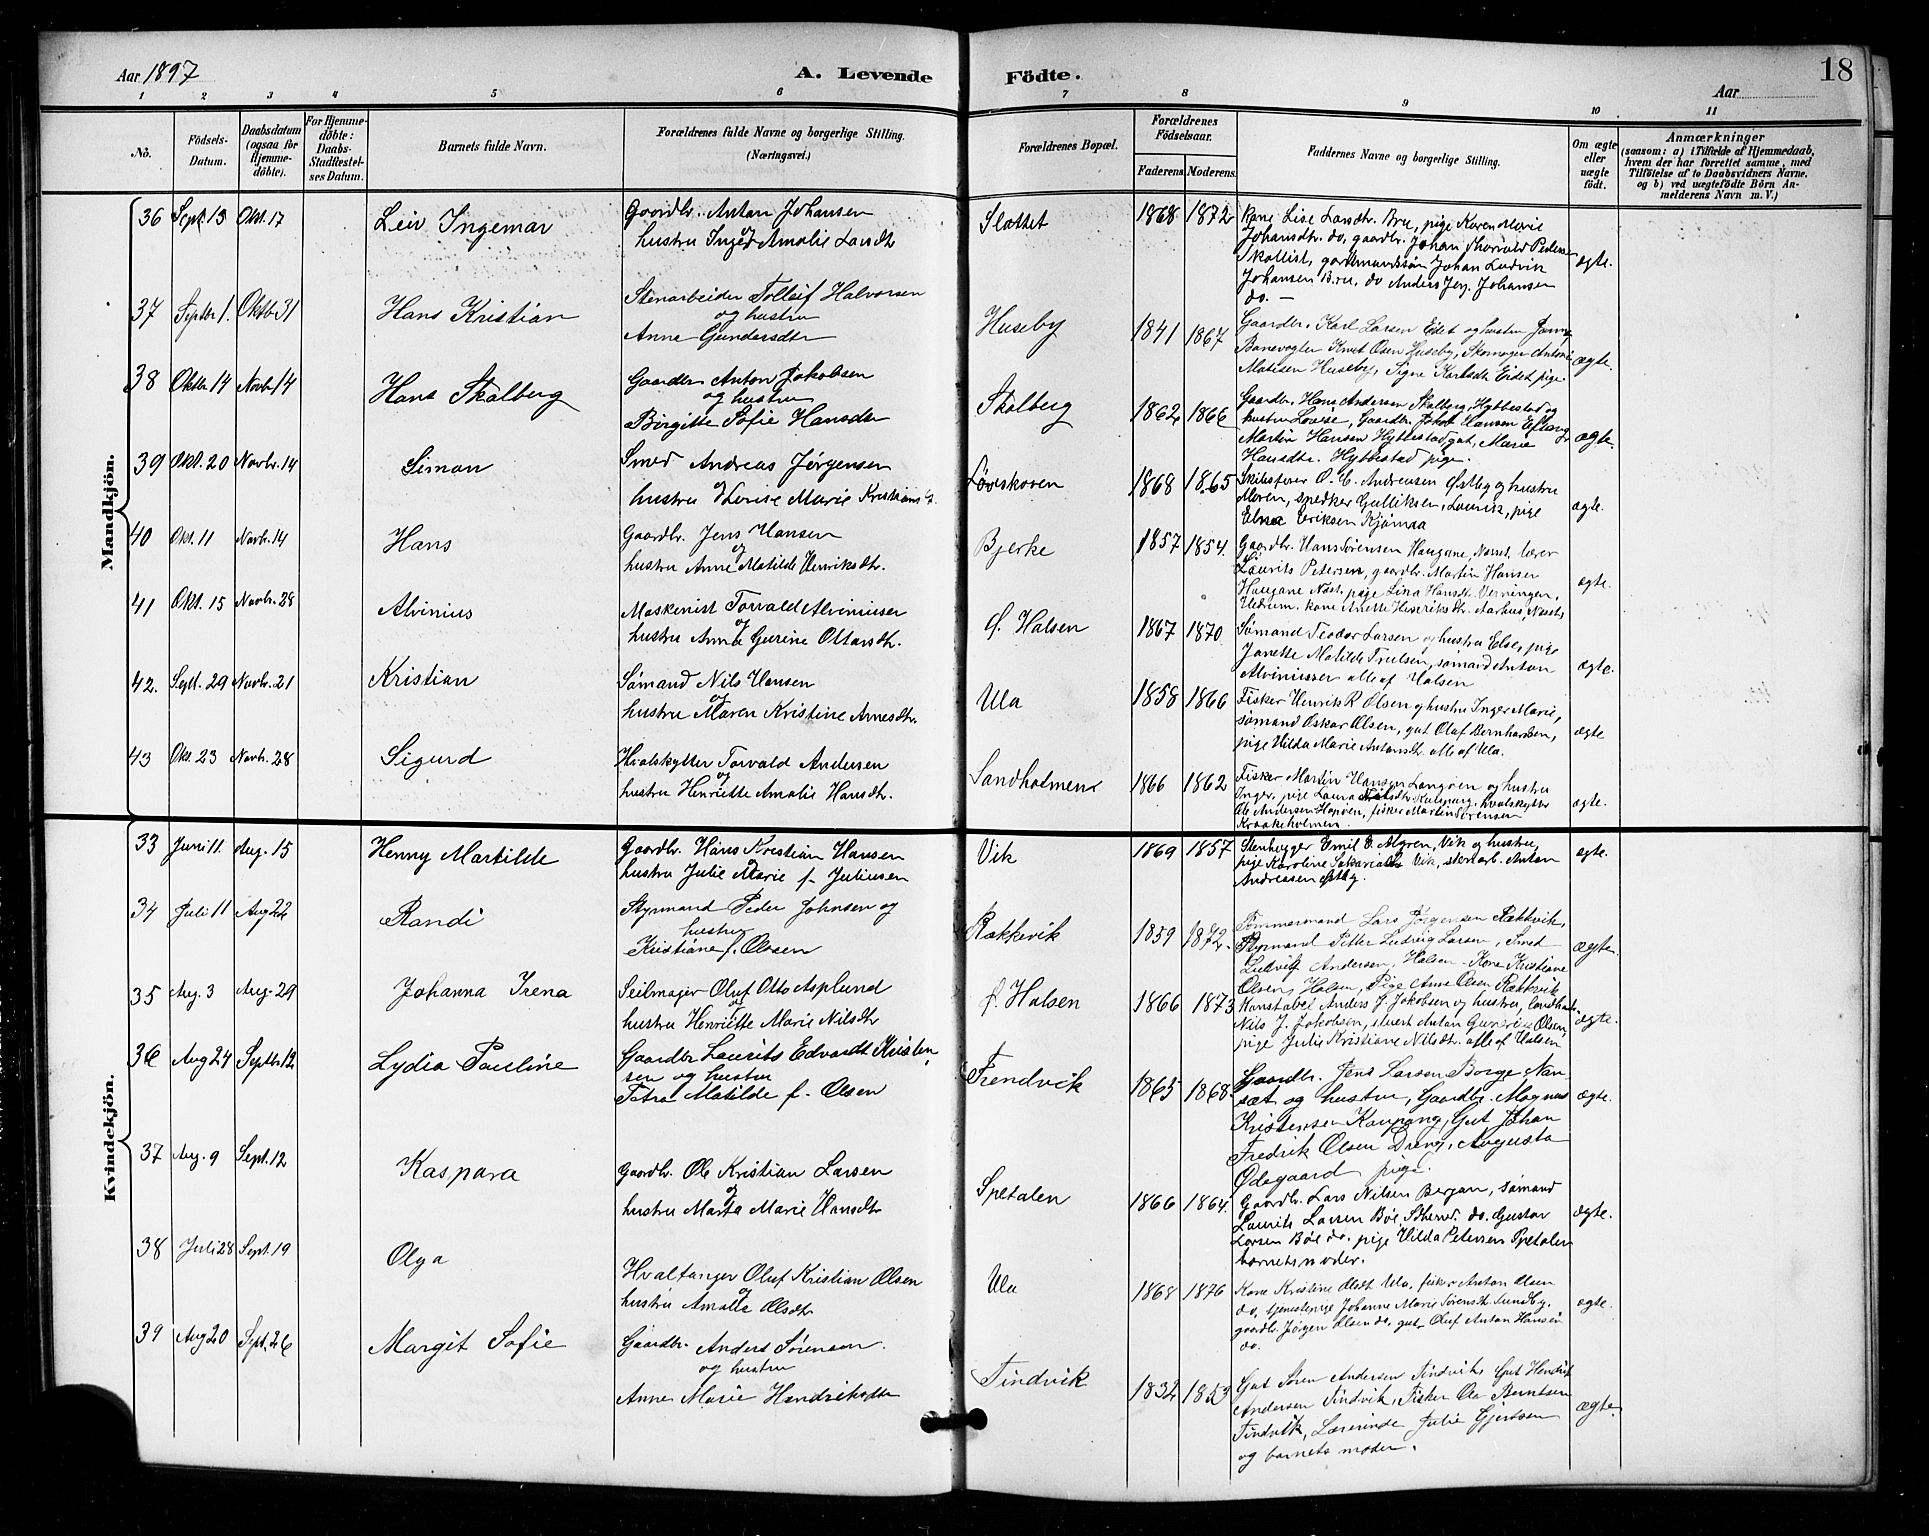 Aar 1897
A. Levende
Födte.
18
Aar
1 2 3 4 5 6 7 8 9 10 11
No.
Födsels-Datum.
Daabsdatum (ogsaa for Hjemmedöbte).
For Hjemmedöbte: Daabs-Stadfestelses Datum.
Barnets fulde Navn.
Forældrenes fulde Navne og borgerlige Stilling. (Næringsvei.)
Forældrenes Bopæl.
Forældrenes Födselsaar.
Faderens Moderens
Faddernes Navne og borgerlige Stilling.
Om ægte eller uægte födt.
Anmærkninger
(saasom: a) i Tilfælde af Hjemmedaab, hvem der har forrettet samme, med Tilföielse af to Daabsvidners Navne, og b) ved uægtefödte Börn Anmelderens Navn m. V.)
Mandkjön.
36 Sept. 13 Okt. 17 Leiv Ingemar
Gaardbr. Anton Johansen
og
hustru Inger Amalie Larsdtr
Slottet 1868 1872
Kone Lise Larsdtr. Bru, pige Karen Marie
Johansdtr. do, gaardbr. Johan Thorvald Pedersen
Skallist, gaardmandssøn Johan Ludvik
Johansen Bru, do Anders Jerg. Johansen
do. —
ægte.
37 Septbr 1. Oktb 31 Hans Kristian
Stenarbeider Tollef Halvorsen
og hustru
Anne Gundersdtr
Huseby 1841 1867
Gaardbr. Karl Larsen Eidet og hustru
Banevogter Knut Olsen Huseby, Skomager Anton
Matisen Huseby, Signe Karlsdtr Eidet pige
ægte.
38 Oktbr 14 Novbr 14 Hans Skalberg
Gaardbr Anton Jakobsen
og hustru
Birgitte Sofie Hansdtr
Skalberg 1862 1866
Gaardbr. Hans Andersen Skalberg, Hybbestad og
hustru Lovise, Gaardbr. Jakob Hansen Eftang
Martin Hansen Hybbestad gut, Marie
Hansdtr. Hybbestad pige.
ægte.
39 Okt. 20 Novbr. 14 Simon
Smed Andreas Jørgensen
og
hustru Lovise Marie Kristiansd.
Løvskoven 1868 1865
Skibsfører O. C. Andreasen Østby og hustru
Maren, snedker Gulliksen, Laurik, pige
Elna Eriksen Kjømsa
ægte.
40 Okt. 11 Novbr. 14 Hans
Gaardbr. Jens Hansen
og
hustru Anne Matilde Henriksdtr.
Bjerke 1857 1854.
Gaardbr. Hans Sørensen Haugane, Næset, lærer
Laurits Petersen, gaardbr. Martin Hansen
Haugane Næset, pige Lina Hansdtr. Verningen,
Hedrum. kone Anette Henriksdtr. Aarhus, Næset,
ægte.
41 Okt. 15 Novbr. 28 Alvinius
Maskenist Torvald Alviniusen
og
hustru Anna Gurine Ottarsdtr.
Ø. Halsen 1867 1870
Sømand Teodor Larsen og hustru Else, pige
Janette Matilde Trulsen, sømand Anton
Alviniusen alle af Halsen
ægte.
42. Sept. 29 Novbr. 21 Kristian
Sømand Nils Hansen
og
hustru Maren Kristine Arnesdtr.
Ula 1858 1866
Fisker Henrik R Olsen og hustru Inger Marie,
sømand Oskar Olsen, gut Olaf Bernhardsen,
pige Hilda Marie Antonsdt. alle af Ula.
ægte
43 Okt. 23 Novbr. 28 Sigurd
Hvalskytter Torvald Andersen
og
hustru Henriette Amalie Hansdtr.
Sandholmen 1866 1862
Fisker Martin Hansen Langøen og hustru
Inger, pige Laura Nilsdtr. Kaupang, hvalskytter
Ole Andersen Hapøen, fisker Martin Sørensen
Kraakeholmen.
ægte.
Kvindekjön.
33 Juni 11. Aug. 15 Henny Martilde
Gaardbr. Hans Kristian Hansen
og
hustru Julie Marie f. Juliusen
Vik 1869 1857
Stenhugger Emil E Myren, Vik og hustru,
pige Karoline Sakariasd. Vik, stenarb. Anton
Andreassen Østby.
ægte.
34 Juli 11 Aug 22 Randi
Styrmand Peder Johnsen og
hustru
Kristiane f. Olsen
Rækkevik 1859 1872.
Tømmermand Lars Jørgensen Rækkvik,
Styrmand Petter Ludvig Larsen, Smed
Ludvig Andersen, Halsen. Kone Kristiane
Olsen, Halsen, Pige Anne Olsen Rækkvik
ægte.
35 Aug. 3 Aug. 29 Johanna Irena
Seilmager Oluf Otto Asplund
og
hustru Henriette Marie Nilsdtr
Ø. Halsen 1866 1873
Konstabel Anders J Jakobsen og hustru,
Nils J. Jakobsen, stuert Anton Olsen,
pige Julie Kristiane Nilsdtr. alle af Halsen
ægte.
36 Aug 24 Septbr. 12 Lydia Pauline
Gaardbr Laurits Edvardt Kristen
sen og hustru
Petra Matilde f. Olsen
Frendvik 1865 1868
Gaardbr. Jens Larsen Borge Nan-
sæt og hustru, Gaardbr. Magnus
Kristensen Kaupang, Gut Johan
Fredrik Olsen Dreng, Augusta
Ødegaard pige.
ægte.
37 Aug. 9 Sept. 12 Kaspara
Gaardbr. Ole Kristian Larsen
og
hustru Marta Marie Hansdtr
Spetalen 1866 1864.
Gaardbr. Lars Nilsen Bergan, sømand
Laurits Larsen Bøe, do. Gustav
Larsen Bøe do. pige Hilda Petersen Spetalen
barnets moder.
ægte.
38 Juli 28 Sept. 19 Olga
Hvalfanger Oluf Kristian Olsen
og
hustru Amalie Olsdtr
Ula 1868 1876
Kone Kristine Olsdt. Ula, fisker Anton Olsen
do, tjenestepige Johanne Marie Sørensdt. Sundby,
gaardbr. Jørgen Olsen do, gut Oluf Anton Hansen
do.
ægte.
39 Aug 20 Sept. 26 Margit Sofie
Gaardbr. Anders Sørensen.
og hustru
Anne Marie Hendriksdtr
Tindvik 1832 1853
Gut Søren Andersen Tindvik Gut Hendrik
Andersen Tindvik, Fisker Ole Berntsen
Tindvik, Lærerinde Julie Gjertsen
og barnets moder.
ægte.